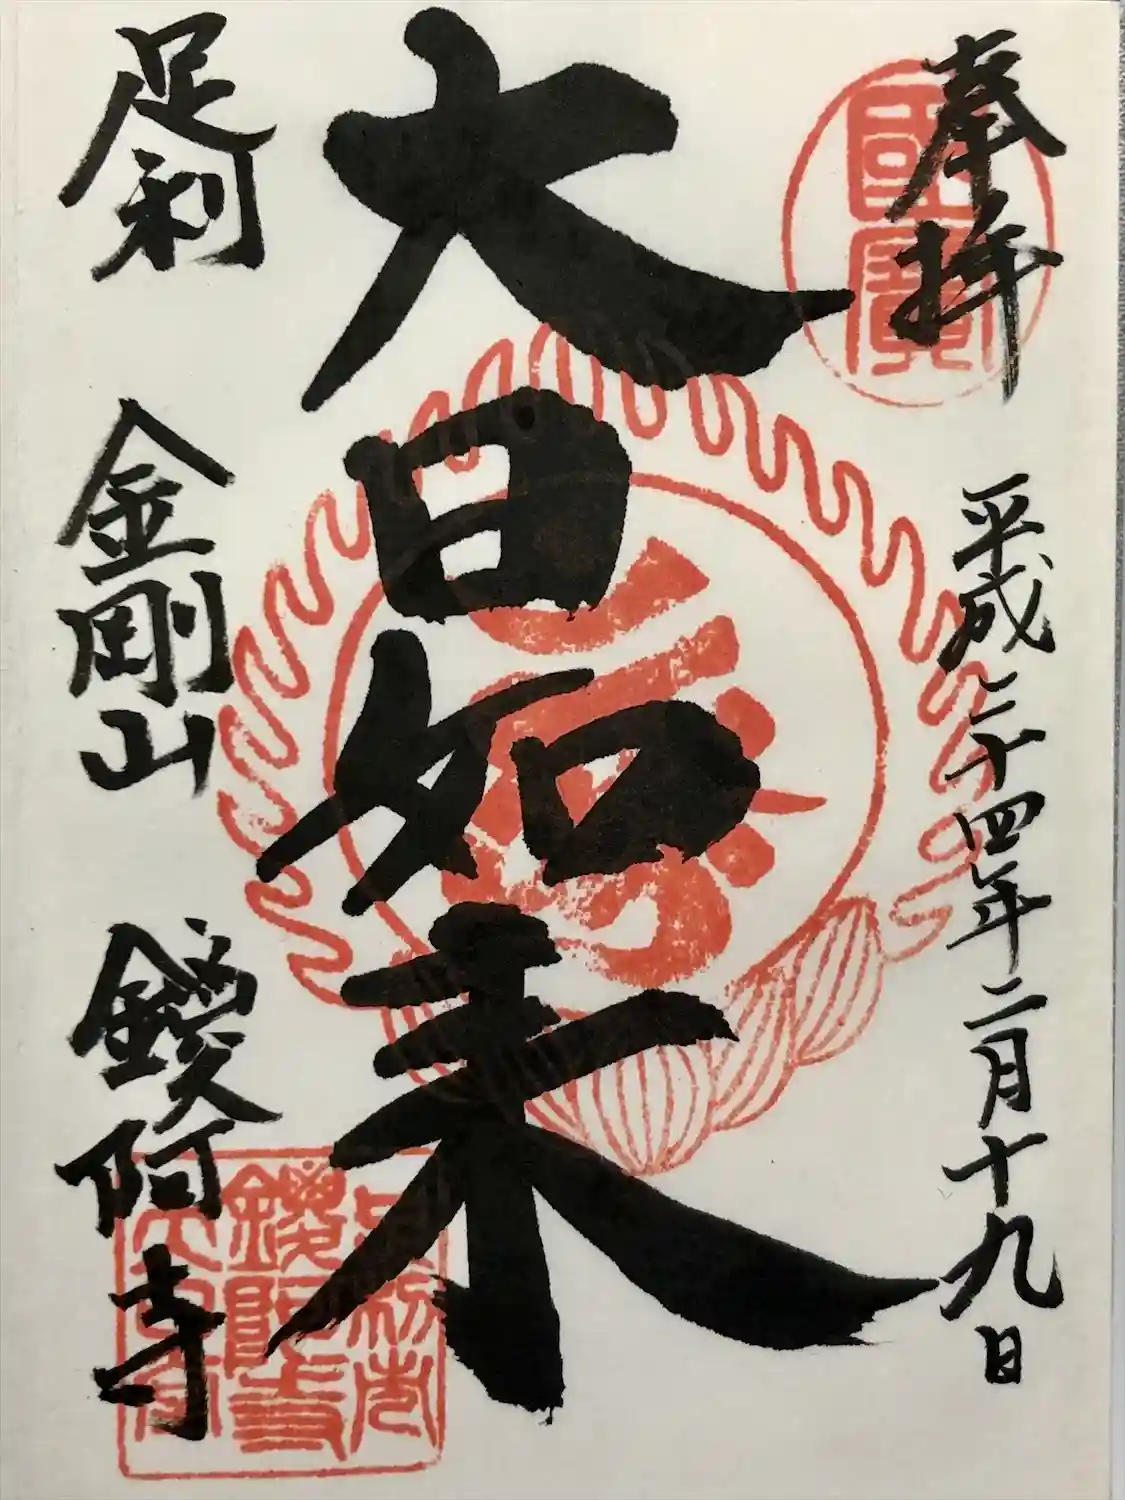 奉拝
平成二十四年二月十九日
國寳
大日如来
足利
金剛山
鑁阿寺